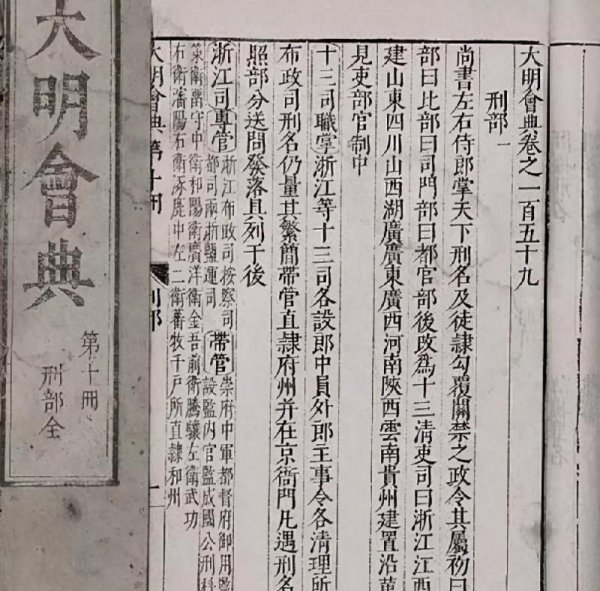 大明會典卷之一百五十九
刑部一
尚書左右侍郎掌天下刑名及徒隸勾覆關禁之政令其屬初曰
部曰比部曰司門部曰都官部後改為十三清吏司曰浙江江西
建山東四川山西湖廣廣東廣西河南陝西雲南貴州建置沿革
見吏部官制中
十三司職掌浙江等十三司各設郎中員外郎主事令各清理所
布政司刑名仍量其繁簡帶管直隸府州并在京衙門凡遇刑名
照部分送問發落具列于後
浙江司專管
浙江布政司按察司
都司兩浙鹽運司
帶管
崇府中軍都督府御用監
設監內官監成國公刑科
衛留守中衛和陽衛廣洋衛金吾前衛騰驤左衛武功
右衛瀋陽右衛涿鹿中左二衛蕃牧千戶所直隸和州
大明會典第十冊
刑部
大明會典
第十冊
刑部全